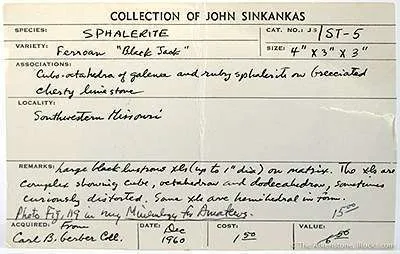 COLLECTION OF JOHN SINKANKAS
SPECIES: SPHALERITE CAT. NO.: J-S/ST-5
VARIETY: Ferroan "Black Jack" SIZE: 4" x 3" x 3"
ASSOCIATIONS:
Cubo-octahedra of galena and ruby sphalerite on brecciated
cherty limestone
LOCALITY:
Southwestern Missouri
REMARKS: Large black lustrous xls (up to 1" dia) on matrix. The xls are
complex showing cube, octahedron and dodecahedron, sometimes
curiously distorted. Some xls are hemihedral in form.
Photo Fig. 119 in my Mineralogy for Amateurs. 15.00
ACQUIRED: From DATE: Dec COST: VALUE:
Carl B. Gerber Coll. 1960 1.50